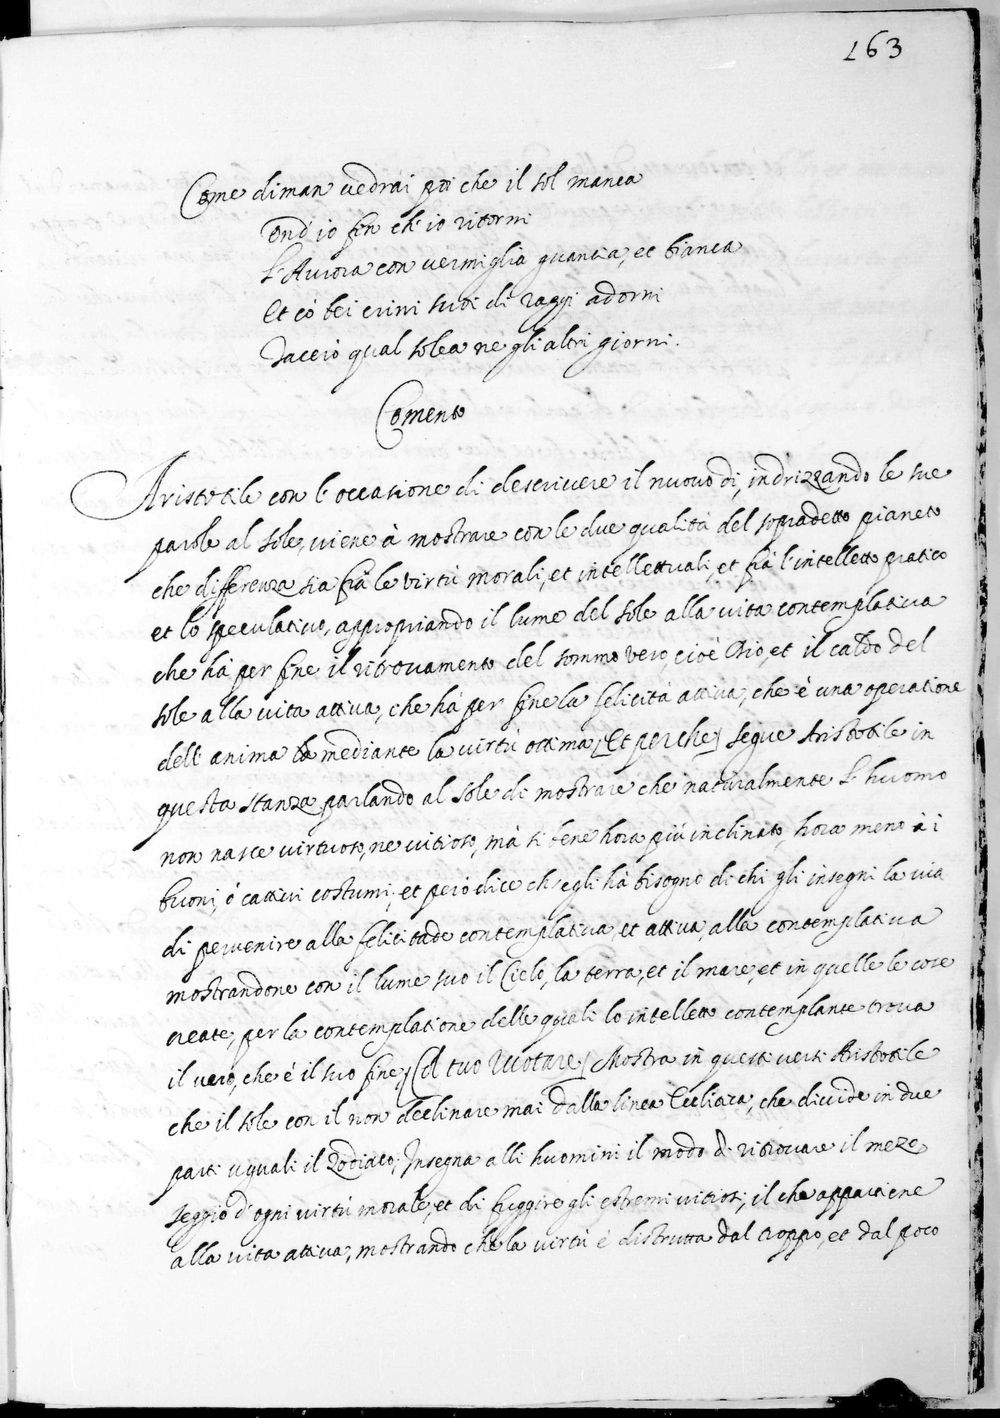 163
Come diman vedrai poi che il sol manca
Ond'io fin ch'io ritorni
L'Aurora con vermiglia guancia, et bianca
Et co' bei crini suoi di raggi adorni
Taccio qual solea ne gli altri giorni.
Comento
Aristotile con l'occasione di descrivere il nuovo dì, indrizzando le sue
parole al sole, viene à mostrare con le due qualità del sopradetto pianeto
che differenza sia frà le virtù morali, et intellettuali, et frà l'intelletto pratico
et lo speculativo, appropriando il lume del sole alla vita contemplativa
che hà per fine il ritrovamento del sommo vero, cioè Dio, et il caldo del
sole alla vita attiva, che hà per fine la felicità attiva, che è una operatione
dell'anima mediante la virtù ottima, [Et perche] segue Aristotile in
questa stanza parlando al sole di mostrare che naturalmente l'huomo
non nasce virtuoso, ne vitioso, mà si bene hora più inclinato, hora meno à i
buoni, ó cattivi costumi, et però dice ch'egli hà bisogno di chi gli insegni la via
di pervenire alla felicitade contemplativa, et attiva, alla contemplativa
mostrandone con il lume suo il Cielo, la terra, et il mare, et in quelle le cose
create, per la contemplatione delle quali lo intelletto contemplante trova
il vero, che é il suo fine, [Il tuo Rotare] Mostra in questi versi Aristotile
che il sole con il non declinare mai dalla linea Eccliara, che divide in due
parti uguali il Zodiaco, Insegna alli huomini il modo di ritrovare il meze
seggio d'ogni virtù morale, et di fuggire gli estremi vitiosi, il che appartiene
alla vita attiva, mostrando che la virtù é distrutta dal troppo, et dal poco